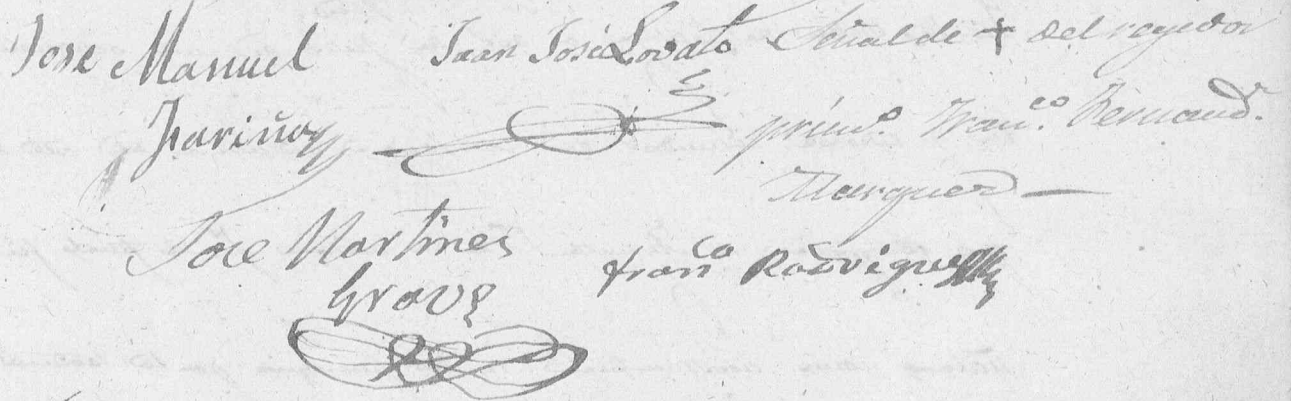 Jose Manuel
Fariñas
Juan José Lovato
Señal de + del regidor
prim.º Fran.co Bernard.
Marquez
Jose Martines
Grove
Fran.co Rodrigues